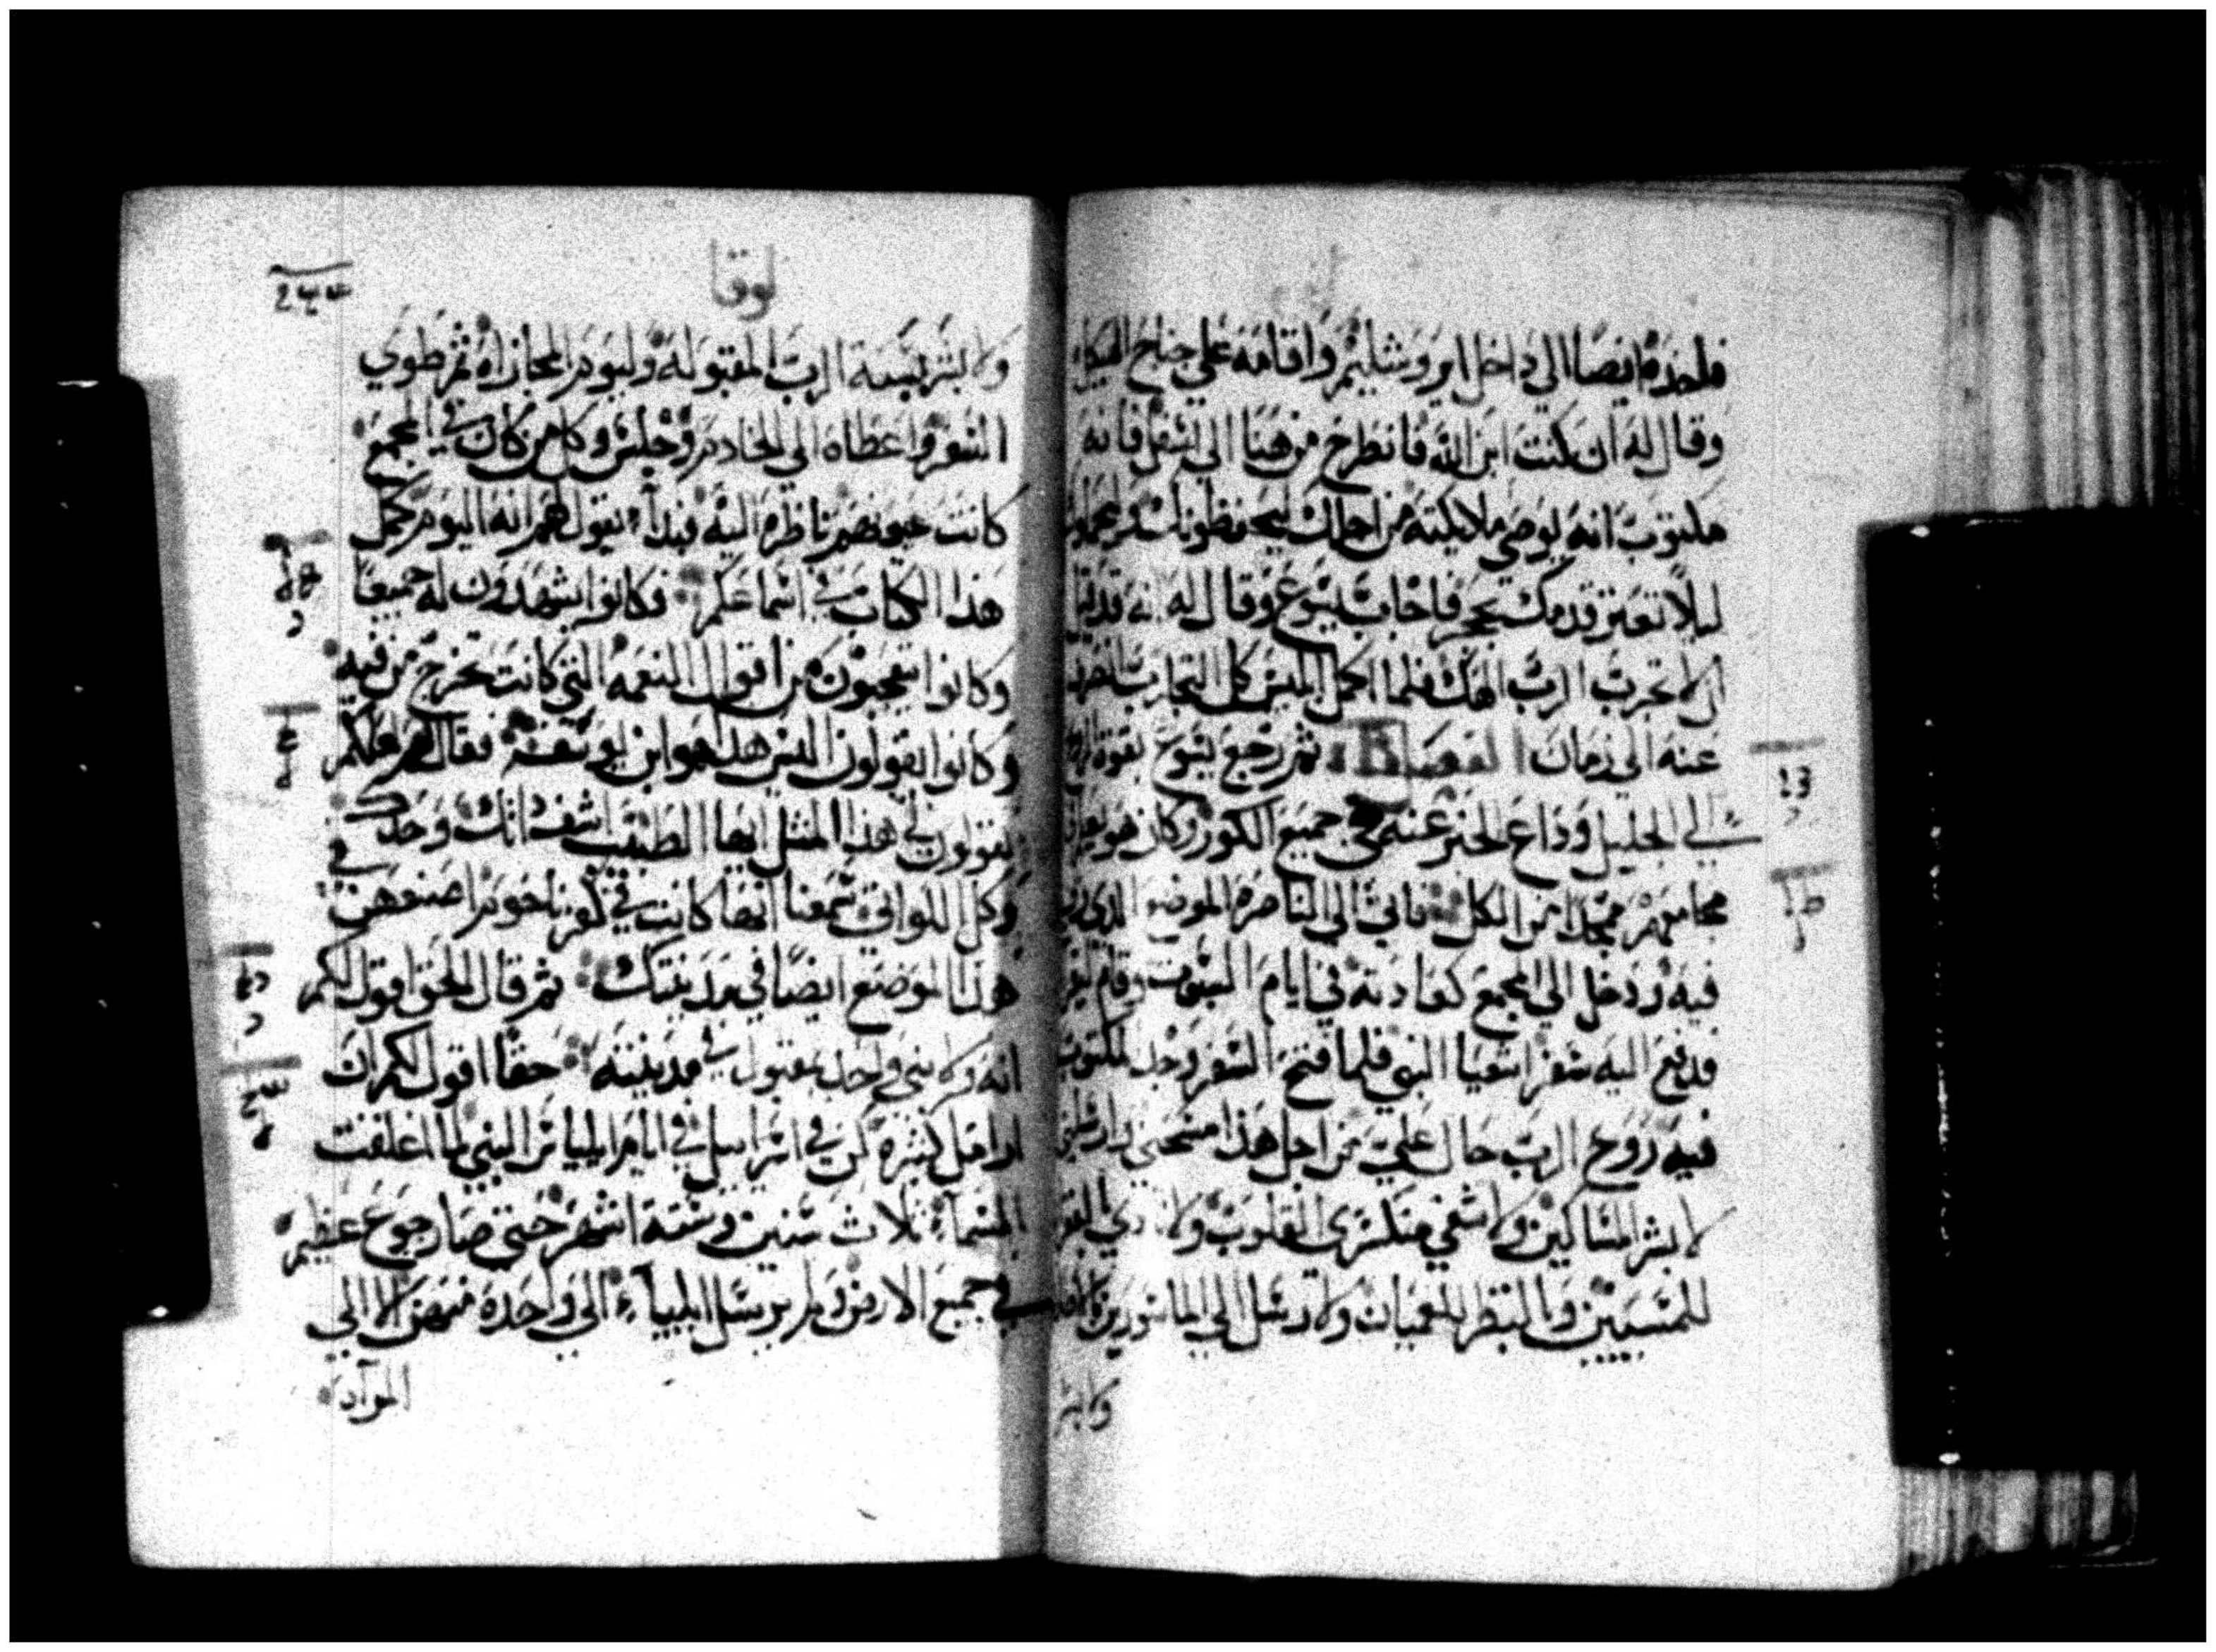 فاخذه ايضا الى داخل ايروشليم واقامه على جناح الهيكل
وقال له ان كنت ابن الله فانطرح من هنا الى اسفل فانه
مكتوب انه يوصي ملايكته من اجلك ليحفظونك
ليلا تعتر قدمك بحجر فاجاب يسوع وقال له انه قد قيل
ان لا تجرب الرب الهك فلما اكمل ابليس كل التجارب
عنه الى زمان الفصل ثم رجع يسوع بقوة
الى الجليل وذاع الخبر عنه في جميع الكور وكان هو يعلم
مجامعهم ممجدا من الكل فاتى الى الناصره الموضع الذي
فيه ودخل الى المجمع كعادته في ايام السبوت وقام
فدفع اليه سفر اشعيا النبي فلما فتح السفر وجد مكتوب
فيه روح الرب حال علي من اجل هذا مسحني
لابشر المساكين ولاشفي منكسري القلوب ولانادي
للمسبيين وبالنظر للعميان ولارسل الى الماسورين
ولابشر
لوقا
ولابشر بسنة الرب المقبوله وليوم المجازاه ثم طوي
السفر واعطاه الى الخادم وجلس وكل من كان في المجمع
كانت عيونهم ناظره اليه فبدأ يقول لهم انه اليوم كمل
هذا الكتاب في اسماعكم فكانوا يشهدون له جميعا
وكانوا يتعجبون من اقوال النعمه التي كانت تخرج من فيه
وكانوا يقولون اليس هذا هو ابن يوسف فقال لهم لعلكم
تقولون لي هذا المثل ايها الطبيب اشف ذاتك وحدك
وكل اللواتي سمعنا انها كانت في كفرناحوم اصنعهن في
هذا الموضع ايضا في مدينتك ثم قال الحق اقول لكم
انه ولا نبي واحد يقبول في مدينته حقا اقول لكم ان
ارامل كثيره كن في اسراييل في ايام ايلياس النبي لما اغلقت
السماء ثلاث سنين وستة اشهر حتى صار جوع عظيم
في جميع الارض ولم يرسل ايلياء الى واحدة منهن الا الى
المرآه